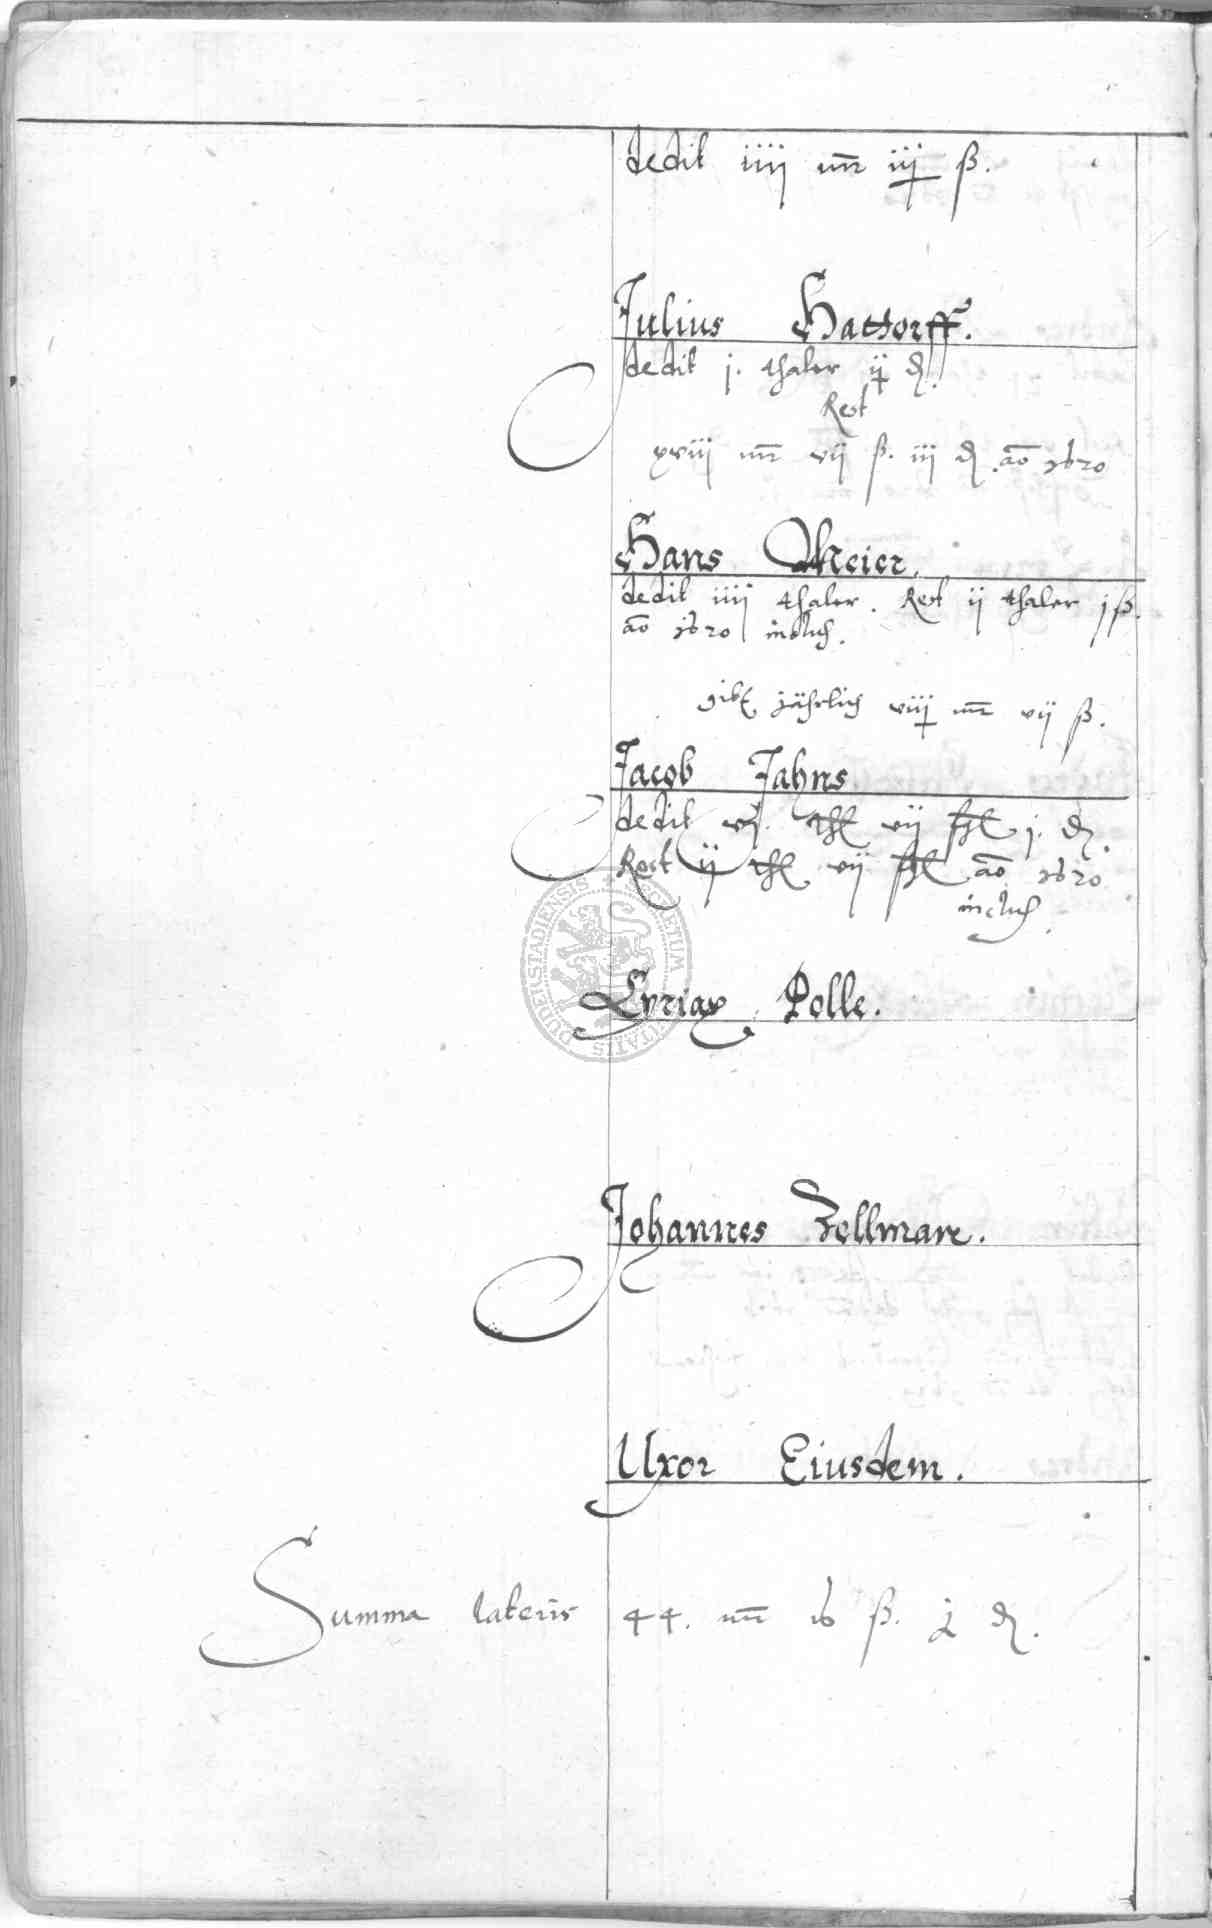 dedit iiij mr iij ß.
Julius Hattorff.
dedit j. thaler ij δ.
Rest
xviij mr vij ß. iij δ. ao 1620
Hans Meier.
dedit iiij thaler. Rest ij thaler j ß.
ao 1620 inclus.
gibt jährlich viij mr vij ß.
Jacob Jahns
dedit vj. thl vij ßl j. δ.
Rest ij thl vij ßl ao 1620
inclus.
Cyriax Polle.
Johannes Zellman.
Uxor Eiusdem.
Summa lateris 44. mr 16 ß. j δ.
SECRETUM CIVITATIS DUDERSTADIENSIS